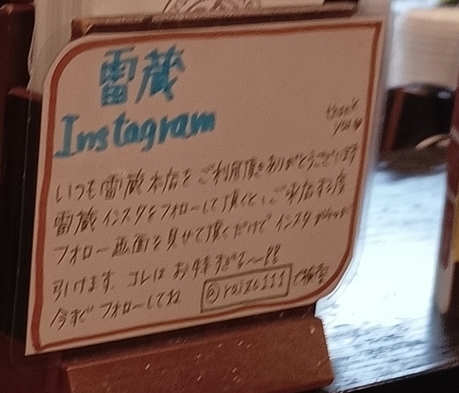 雷蔵
Instagram
thank
you
いつも雷蔵本店をご利用頂きありがとうございます
雷蔵インスタをフォローして頂くと、ご来店する度
フォロー画面を見せて頂くだけでインスタ
引けます。コレはお特すぎる〜!!
今すぐフォローしてね @raizo111で検索